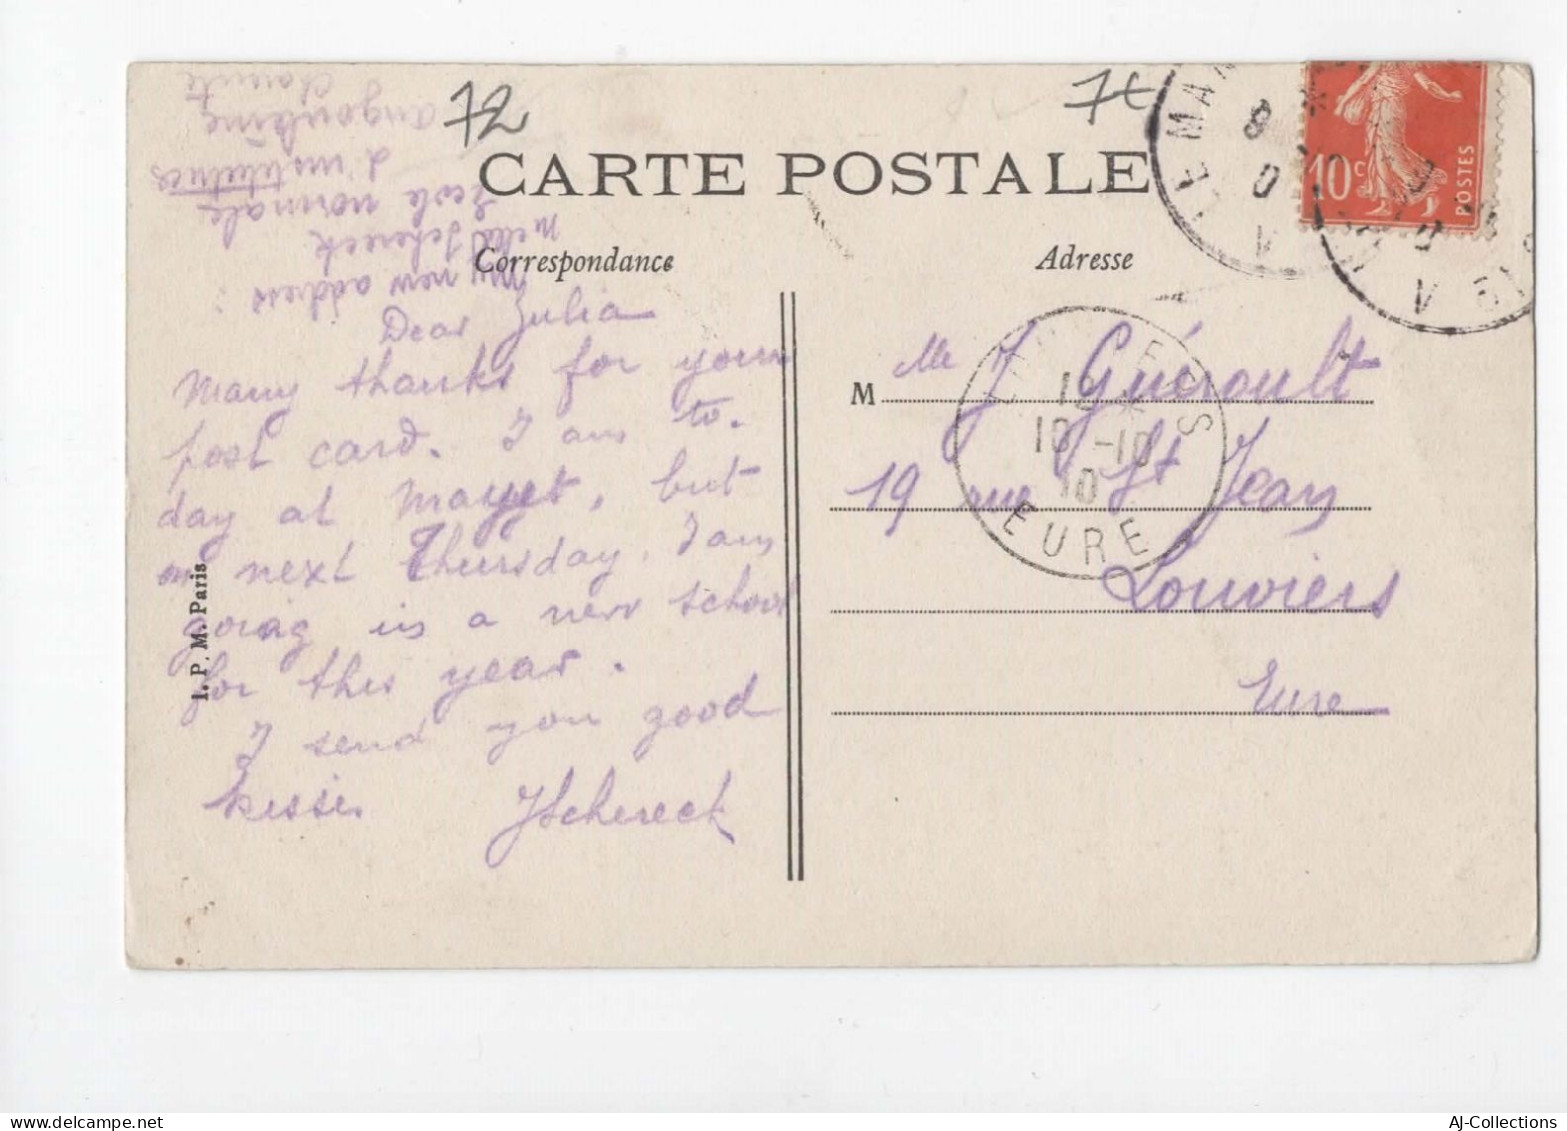 72
7t
CARTE POSTALE
Correspondance
Adresse
My new address :
Melle Schereck
Ecole normale
d'institutrices
Angoulême
Charente
Dear Julia
Many thanks for your
post card. I am to-
day at Mayet, but
on next Thursday, I am
going in a new school
for this year.
I send you good
kisses JSchereck
I. P. M. Paris
M Mlle J Guéroult
19 rue St Jean
Louviers
Eure
LE MAN
10c
POSTES
EURE
10 -10
10
AJ-Collections